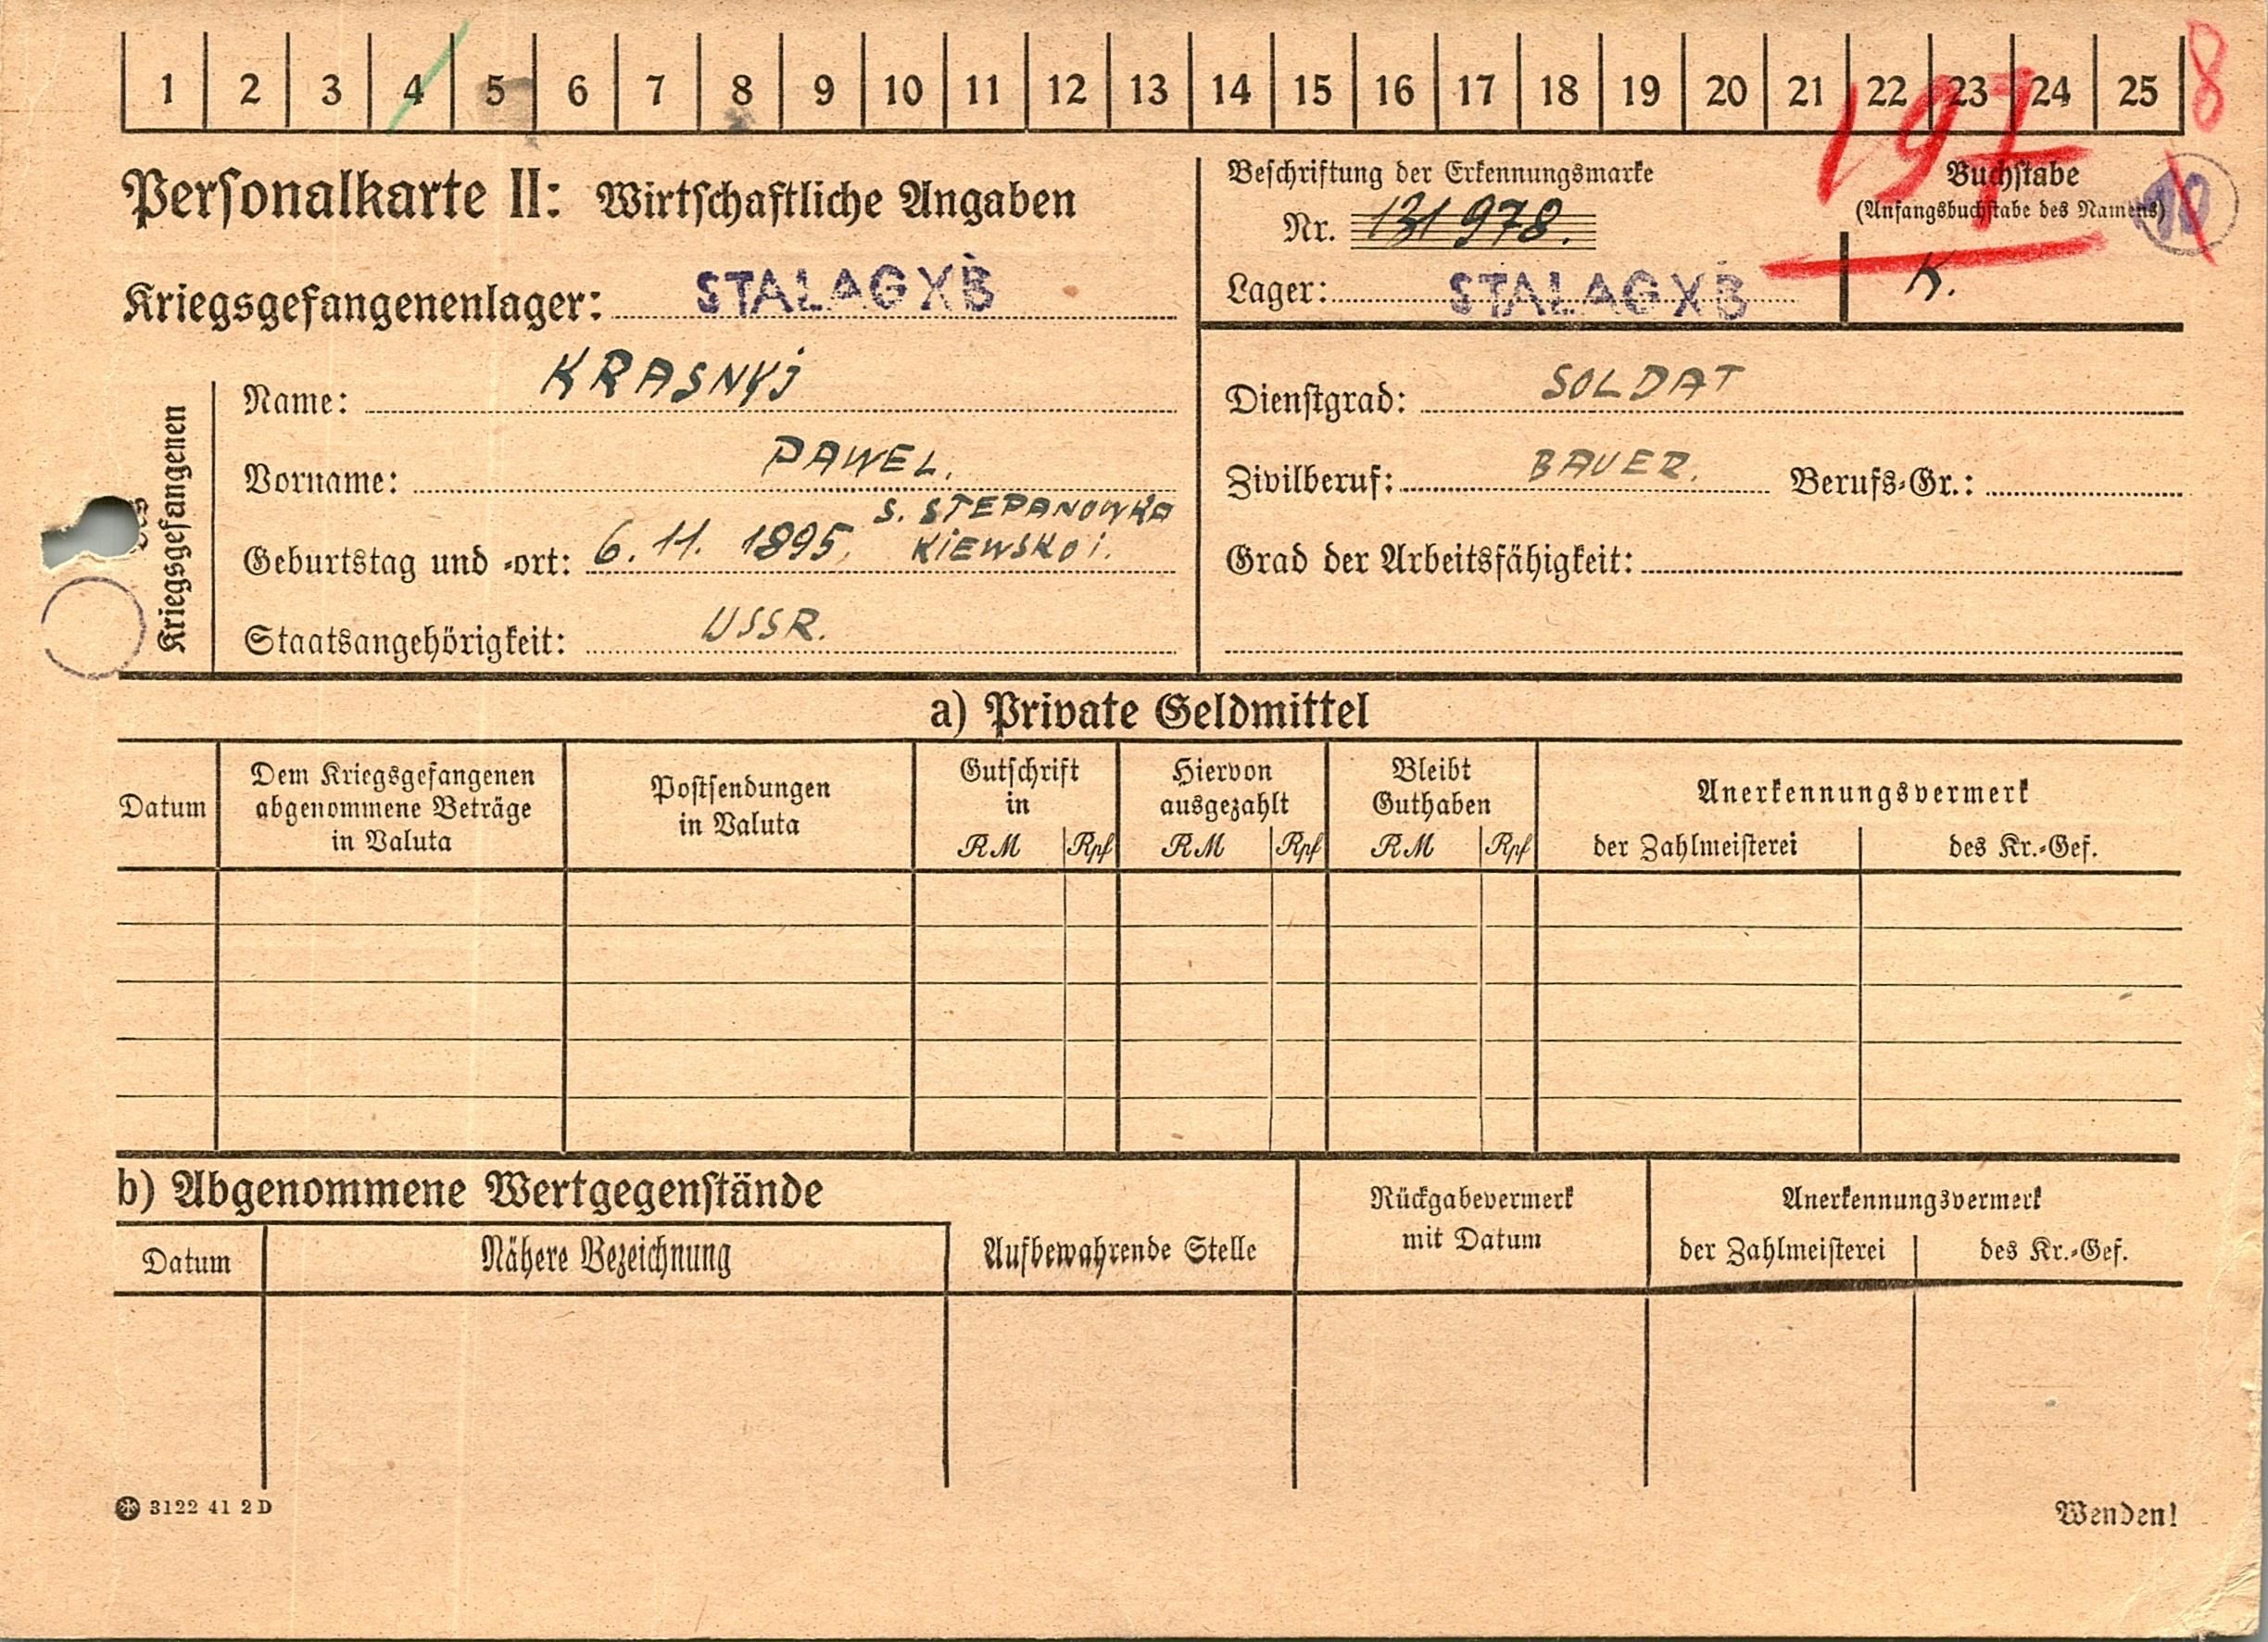 1 2 3 4 5 6 7 8 9 10 11 12 13 14 15 16 17 18 19 20 21 22 23 24 25 8
197
Personalkarte II: Wirtschaftliche Angaben
Beschriftung der Erkennungsmarke
Nr. 131978.
Buchstabe
(Anfangsbuchstabe des Namens)
Kriegsgefangenenlager: STALAG XB
Lager: STALAG XB
K.
Kriegsgefangenen
Name: KRASNYJ
Vorname: PAWEL.
S. STEPANOWKA
Geburtstag und -ort: 6. 11. 1895. KIEWSKOI.
Staatsangehörigkeit: USSR.
Dienstgrad: SOLDAT
Zivilberuf: BAUER. Berufs-Gr.:
Grad der Arbeitsfähigkeit:
a) Private Geldmittel
Datum
Dem Kriegsgefangenen
abgenommene Beträge
in Valuta
Postsendungen
in Valuta
Gutschrift
in
RM Rpf
Hiervon
ausgezahlt
RM Rpf
Bleibt
Guthaben
RM Rpf
Anerkennungsvermerk
der Zahlmeisterei des Kr.-Gef.
b) Abgenommene Wertgegenstände
Datum
Nähere Bezeichnung
Aufbewahrende Stelle
Rückgabevermerk
mit Datum
Anerkennungsvermerk
der Zahlmeisterei des Kr.-Gef.
3122 41 2 D
Wenden!